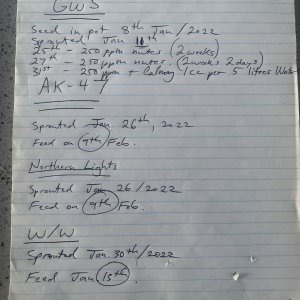 GWS
Seed in pot 8th Jan/2022
Sprouted Jan 11th
25th - 250 ppm nutes (2 weeks)
27th - 250 ppm nutes. (2 weeks 2 days)
31st - 250 ppm + Calmag 1cc per 5 litres Water
AK-47
Sprouted Jan. 26th, 2022
Feed on 9th Feb.
Northern Lights
Sprouted Jan 26/2022
Feed on 9th Feb.
W/W
Sprouted Jan. 30th/2022
Feed Jan 13th.